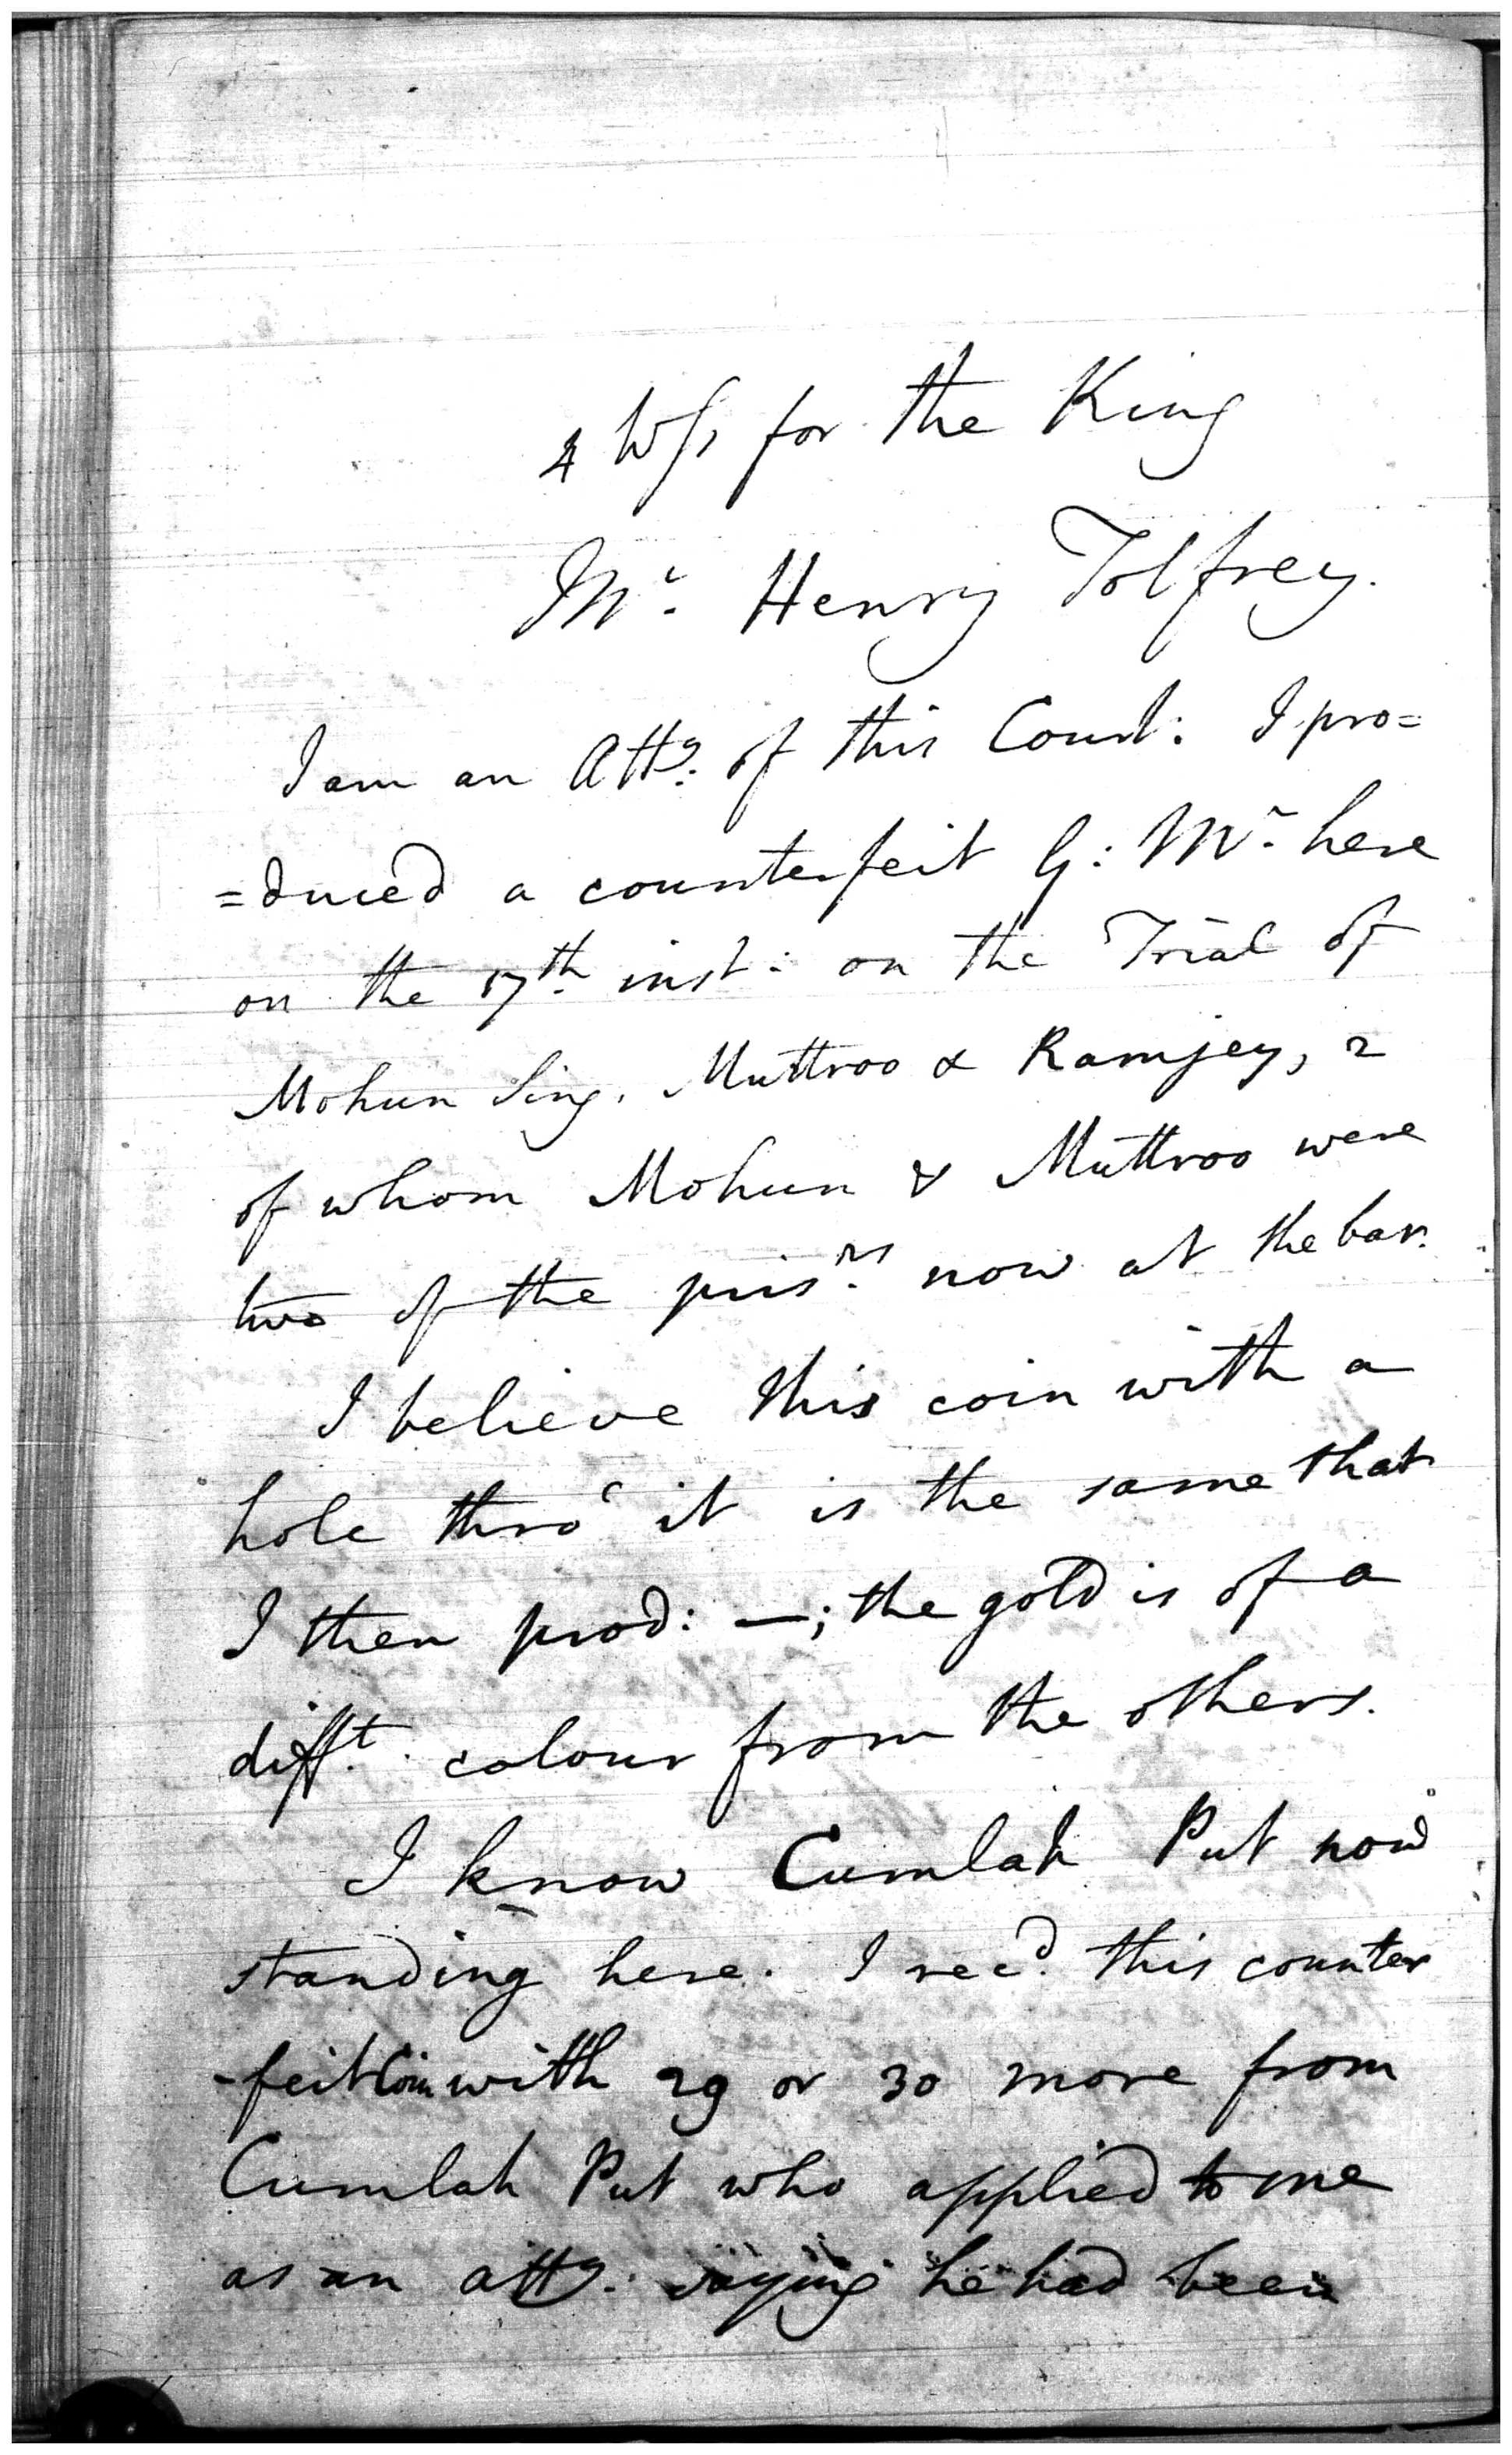 4 Wss for the King
Mr. Henry Tolfrey.
I am an Atty. of this Court: I pro=
=duced a counterfeit G: Mr. here
on the 17th. inst: on the Trial of
Mohun Sing, Muttroo & Ramjey, 2
of whom Mohun & Muttroo were
two of the prisrs. now at the bar.
I believe this coin with a
hole thro' it is the same that
I then prod: —; the gold is of a
difft. colour from the others.
I know Cumlah Put now
standing here. I recd. this counter
-feit Coin with 29 or 30 more from
Cumlah Put who applied to me
as an atty. saying he had been